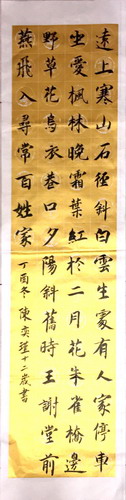 遠上寒山石徑斜白雲生處有人家停車
坐愛楓林晚霜葉紅於二月花朱雀橋邊
野草花烏衣巷口夕陽斜舊時王謝堂前
燕飛入尋常百姓家
丁酉冬陳奕十二歲書